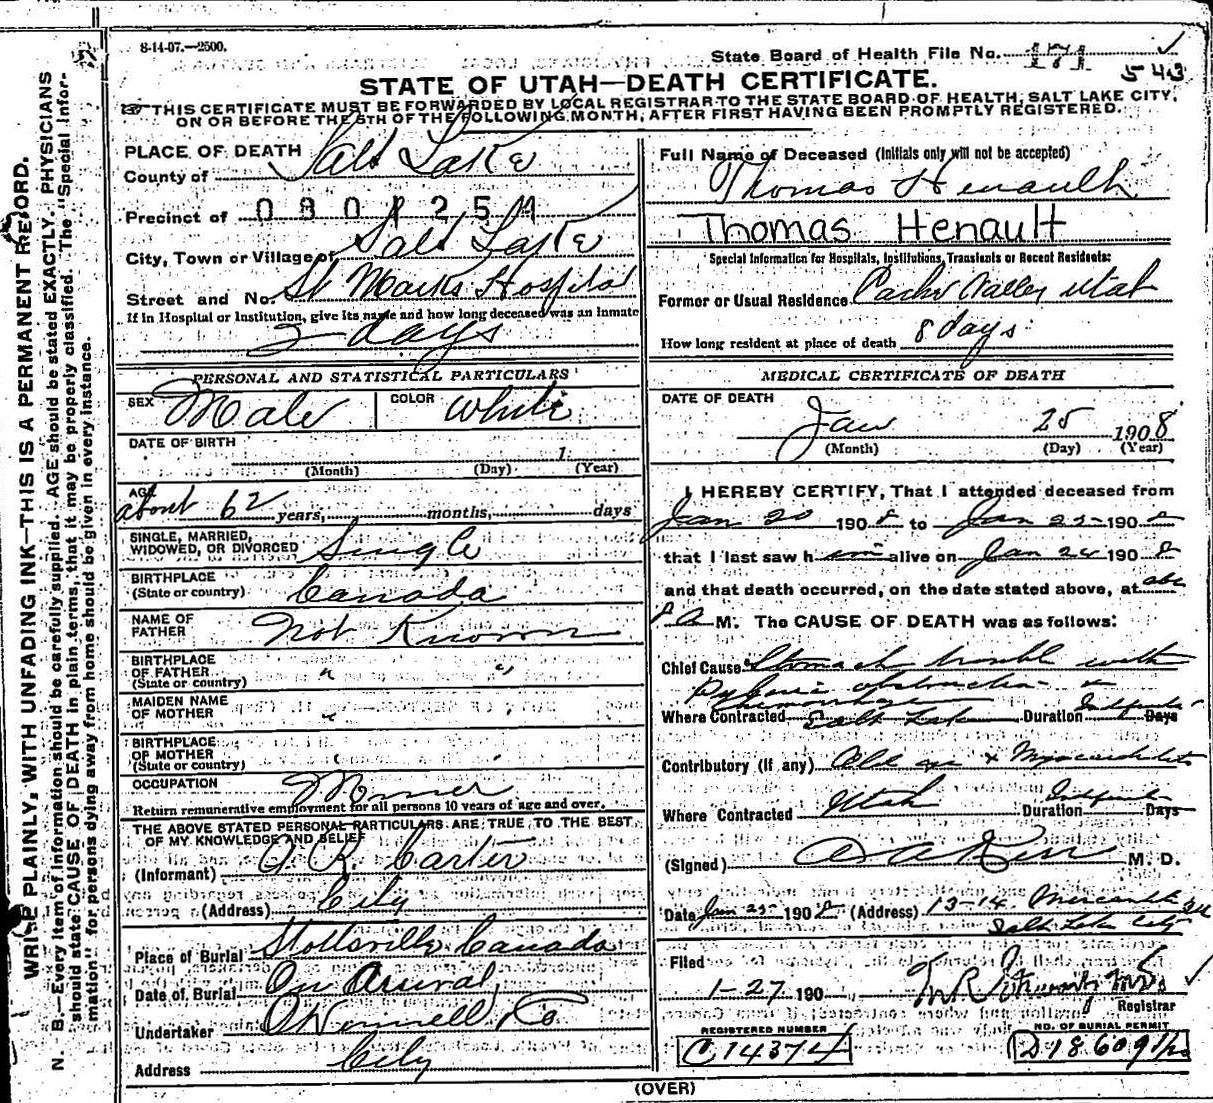 8-14-07.—2500.
State Board of Health File No. 171
543
STATE OF UTAH—DEATH CERTIFICATE.
THIS CERTIFICATE MUST BE FORWARDED BY LOCAL REGISTRAR TO THE STATE BOARD OF HEALTH, SALT LAKE CITY,
ON OR BEFORE THE 5TH OF THE FOLLOWING MONTH, AFTER FIRST HAVING BEEN PROMPTLY REGISTERED.
WRITE PLAINLY, WITH UNFADING INK—THIS IS A PERMANENT RECORD.
N. B.—Every item of information should be carefully supplied. AGE should be stated EXACTLY. PHYSICIANS
should state CAUSE OF DEATH in plain terms, that it may be properly classified. The "Special Infor-
mation" for persons dying away from home should be given in every instance.
PLACE OF DEATH
County of Salt Lake
Precinct of
City, Town or Village of Salt Lake
Street and No. St Marks Hospital
If in Hospital or Institution, give its name and how long deceased was an inmate
2 days
PERSONAL AND STATISTICAL PARTICULARS
SEX Male COLOR White
DATE OF BIRTH 1
(Month) (Day) (Year)
AGE about 62 years, months, days
SINGLE, MARRIED,
WIDOWED, OR DIVORCED Single
BIRTHPLACE
(State or country) Canada
NAME OF
FATHER Not Known
BIRTHPLACE
OF FATHER
(State or country) " "
MAIDEN NAME
OF MOTHER
BIRTHPLACE
OF MOTHER
(State or country)
OCCUPATION Miner
Return remunerative employment for all persons 10 years of age and over.
THE ABOVE STATED PERSONAL PARTICULARS ARE TRUE TO THE BEST
OF MY KNOWLEDGE AND BELIEF
(Informant) R. Carter
(Address) City
Place of Burial Stottsville Canada
Date of Burial On Arrival
Undertaker O'Donnell & Co
Address City
Full Name of Deceased (Initials only will not be accepted)
Thomas Henault
Thomas Henault
Special Information for Hospitals, Institutions, Transients or Recent Residents:
Former or Usual Residence Cache Valley Utah
How long resident at place of death 8 days
MEDICAL CERTIFICATE OF DEATH
DATE OF DEATH
Jan 25 1908
(Month) (Day) (Year)
I HEREBY CERTIFY, That I attended deceased from
Jan 20 1908 to Jan 25 1908
that I last saw him alive on Jan 24 1908
and that death occurred, on the date stated above, at abt
8 A M. The CAUSE OF DEATH was as follows:
Chief Cause Stomach trouble with
Pyloric obstruction &
Hemorrhage
Where Contracted Salt Lake Duration Indefinite Days
Contributory (if any) Old age & Myocarditis
Where Contracted Utah Duration Indefinite Days
(Signed) M. D.
Date Jan 25 1908 (Address) 13-14 Mercantile Blk
Salt Lake City
Filed
1-27 190
Registrar
REGISTERED NUMBER
C 14374
NO. OF BURIAL PERMIT
D 18609 1/2
(OVER)